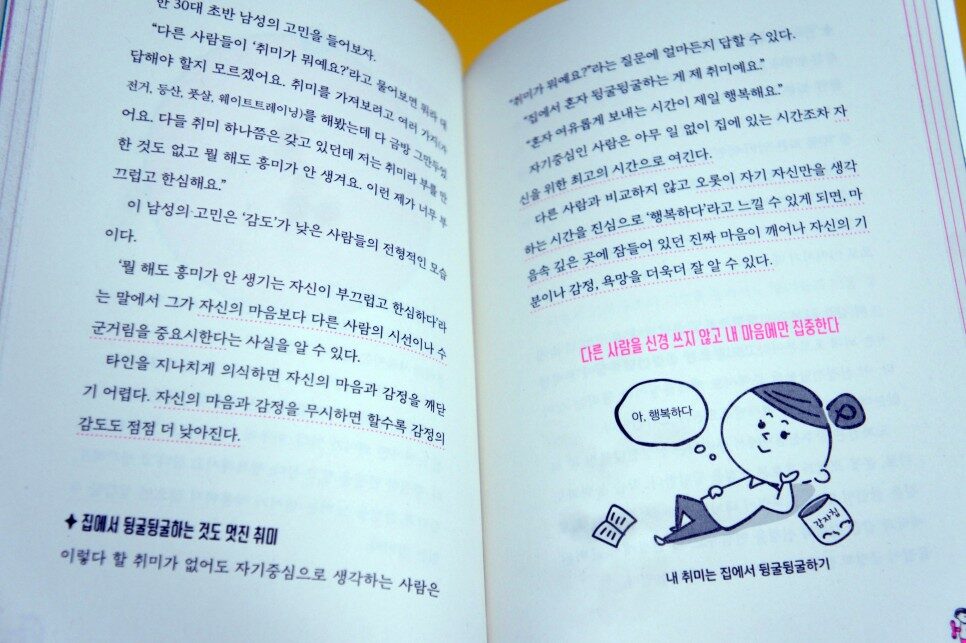 한 30대 초반 남성의 고민을 들어보자.
“다른 사람들이 ‘취미가 뭐예요?’라고 물어보면 뭐라 대
답해야 할지 모르겠어요. 취미를 가져보려고 여러 가지(자
전거, 등산, 풋살, 웨이트트레이닝)를 해봤는데 다 금방 그만두었
어요. 다들 취미 하나쯤은 갖고 있던데 저는 취미라 부를 만
한 것도 없고 뭘 해도 흥미가 안 생겨요. 이런 제가 너무 부
끄럽고 한심해요.”
이 남성의 고민은 ‘감도’가 낮은 사람들의 전형적인 모습
이다.
‘뭘 해도 흥미가 안 생기는 자신이 부끄럽고 한심하다’라
는 말에서 그가 자신의 마음보다 다른 사람의 시선이나 수
군거림을 중요시한다는 사실을 알 수 있다.
타인을 지나치게 의식하면 자신의 마음과 감정을 깨닫
기 어렵다. 자신의 마음과 감정을 무시하면 할수록 감정의
감도도 점점 더 낮아진다.
✦ 집에서 뒹굴뒹굴하는 것도 멋진 취미
이렇다 할 취미가 없어도 자기중심으로 생각하는 사람은
“취미가 뭐예요?”라는 질문에 얼마든지 답할 수 있다.
“집에서 혼자 뒹굴뒹굴하는 게 제 취미예요.”
“혼자 여유롭게 보내는 시간이 제일 행복해요.”
자기중심인 사람은 아무 일 없이 집에 있는 시간조차 자
신을 위한 최고의 시간으로 여긴다.
다른 사람과 비교하지 않고 오롯이 자기 자신만을 생각
하는 시간을 진심으로 ‘행복하다’라고 느낄 수 있게 되면, 마
음속 깊은 곳에 잠들어 있던 진짜 마음이 깨어나 자신의 기
분이나 감정, 욕망을 더욱더 잘 알 수 있다.
다른 사람을 신경 쓰지 않고 내 마음에만 집중한다
아, 행복하다
감자칩
내 취미는 집에서 뒹굴뒹굴하기